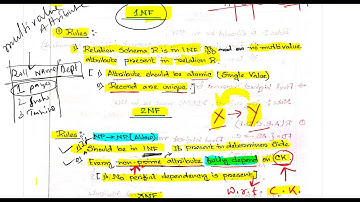 multivalue
Attribute
1NF
① Rules :-
Relation Schema R is in 1NF iff no multivalue
attribute present in relation R.
[① Attribute should be atomic (Single Value)
② Record are unique.]
Roll Name Dept
1
2
3
X → Y
2NF
Rules :-
NF → NF (Allow)
Should be in 1NF
present in determiner Side
Every non-prime attribute fully depend on CK.
[No partial dependency is present]
w.r.t. C.K.